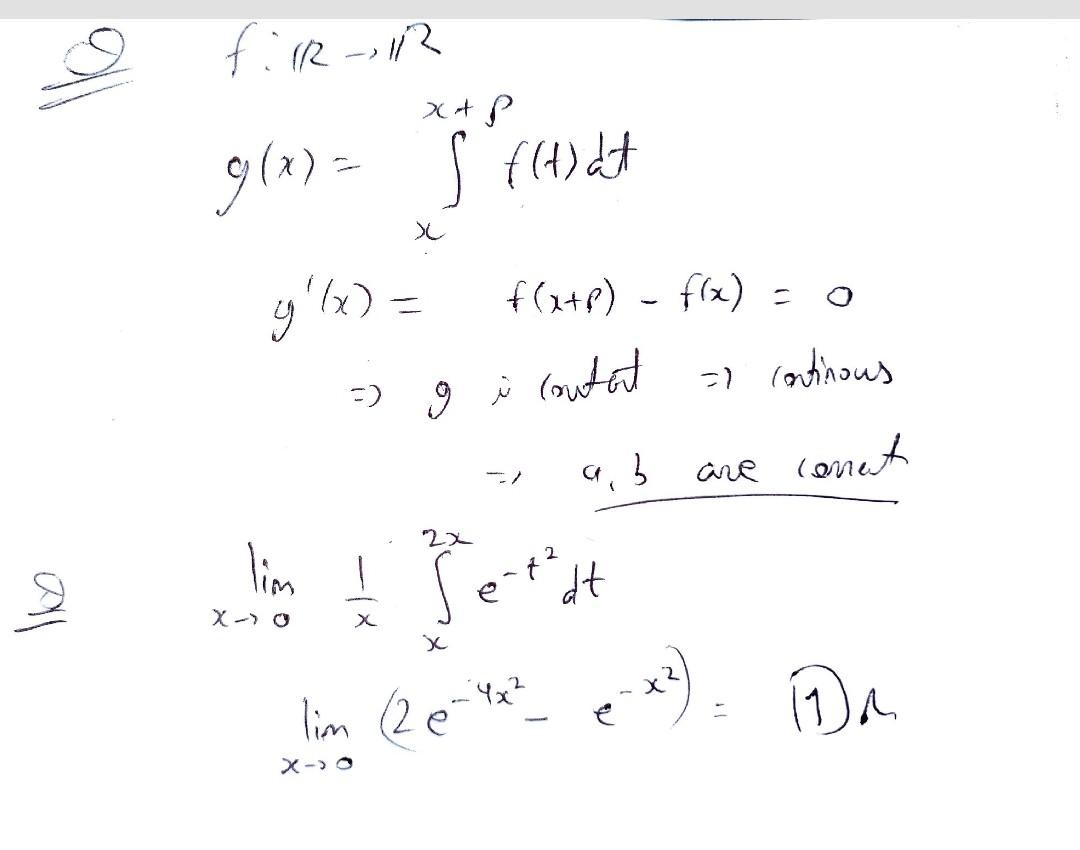 Q f: ℝ → ℝ
g(x) = ∫ₓ^{x+p} f(t) dt
g'(x) = f(x+p) - f(x) = 0
=> g is => continous
=> a, b are
Q lim_{x→0} 1/x ∫ₓ^{2x} e^{-t²} dt
lim_{x→0} (2e^{-4x²} - e^{-x²}) = 1